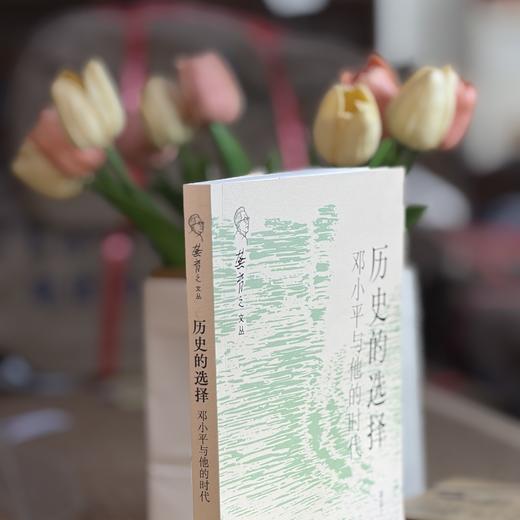 龚育之文丛
历史的选择
邓小平与他的时代
龚育之文丛
历史的选择
邓小平与他的时代